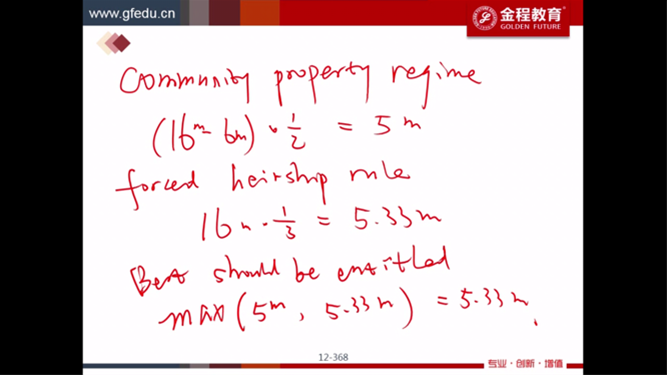 www.gfedu.cn
金程教育
GOLDEN FUTURE
Community property regime
(16m - 6m) · 1/2 = 5m
forced heirship rule
16m · 1/3 = 5.33m
Bert should be entitled
max (5m, 5.33m) = 5.33m.
12-368
专业·创新·增值